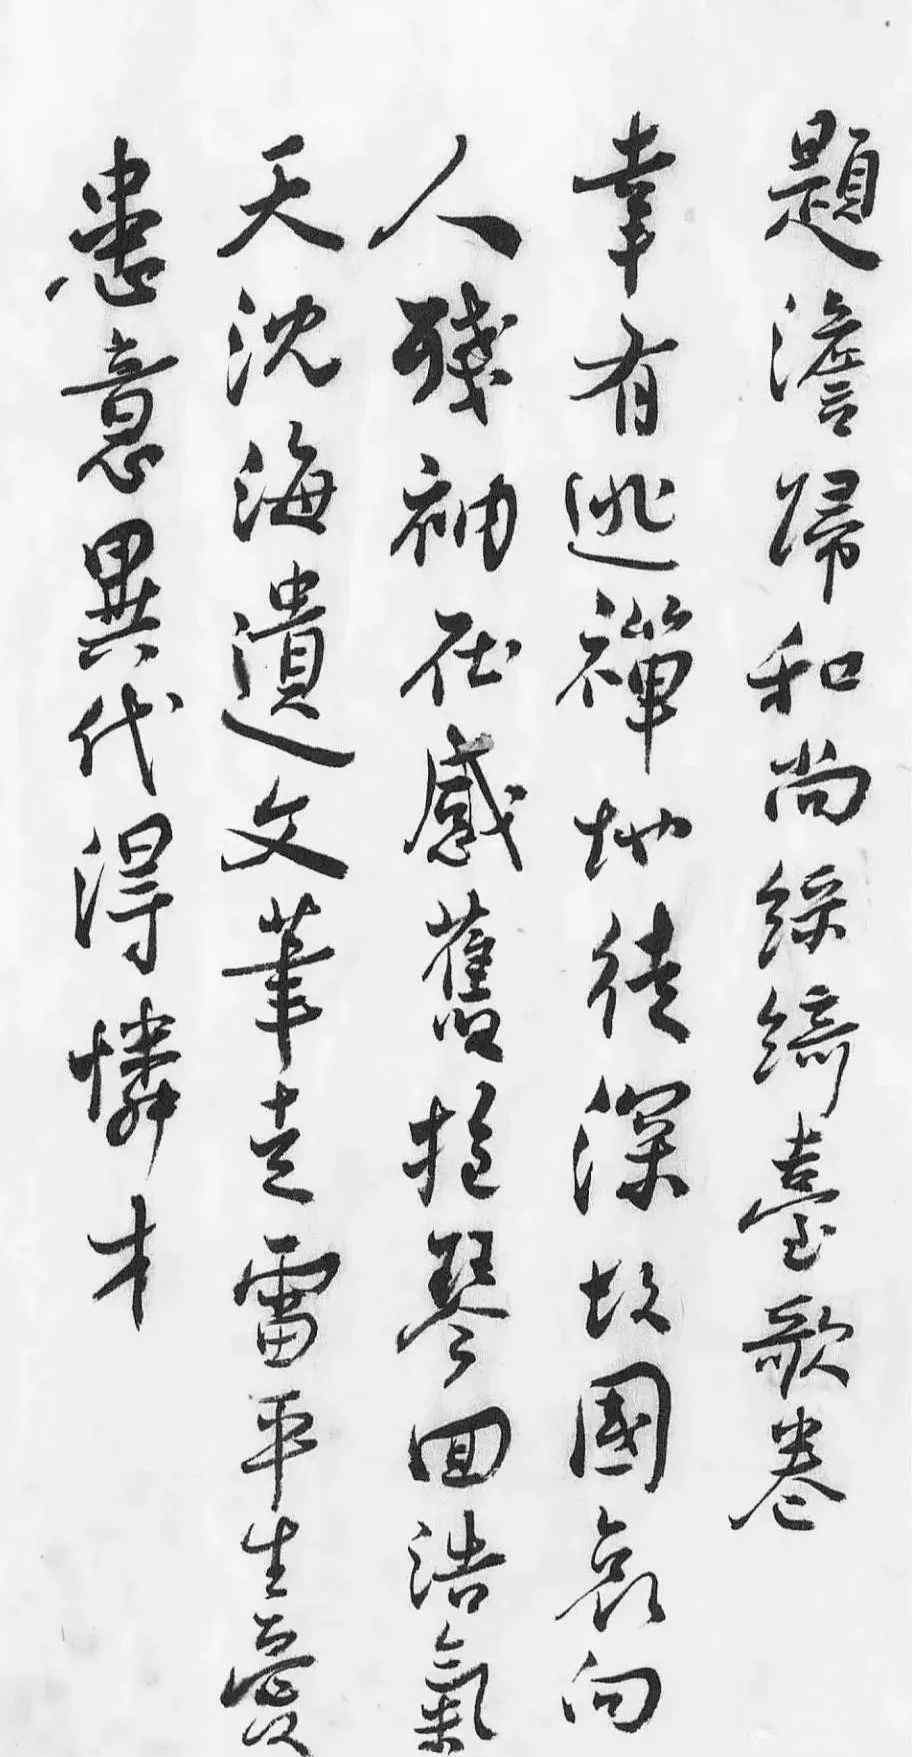 題澹歸和尚綵繒臺歌卷
幸有逃禪地徒深故國哀向
人殘衲在感舊抱琴回浩氣
天沈海遺文筆走雷平生憂
患意異代得憐才